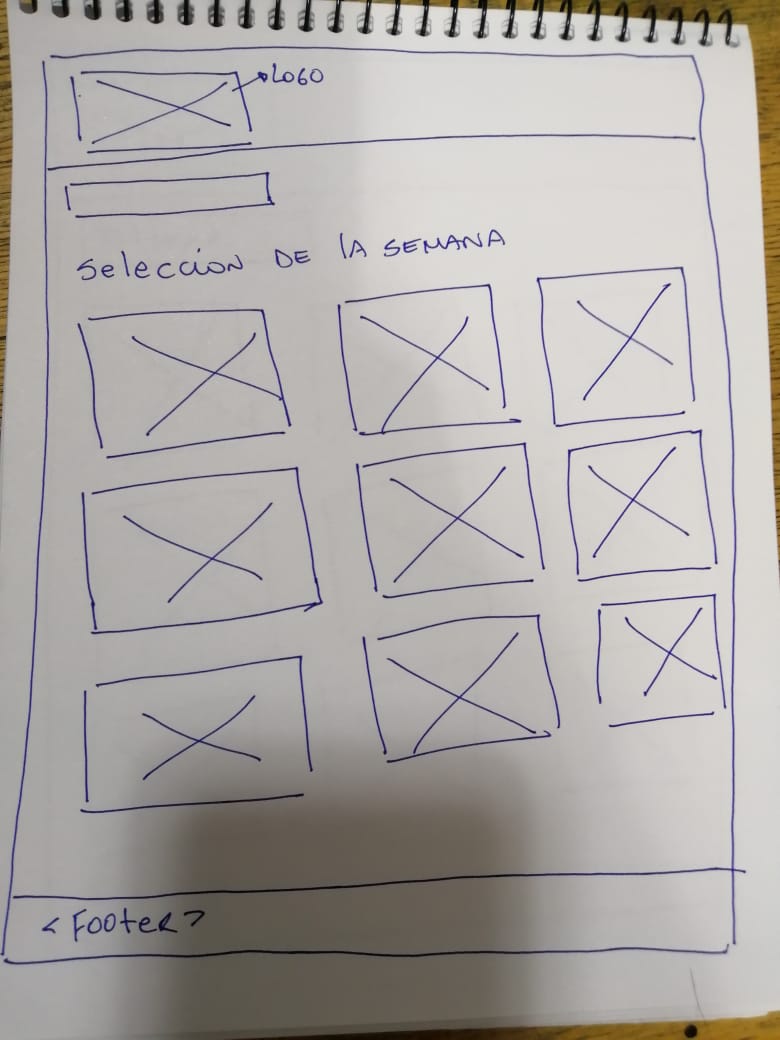 LOGO
Selección DE LA SEMANA
<Footer>